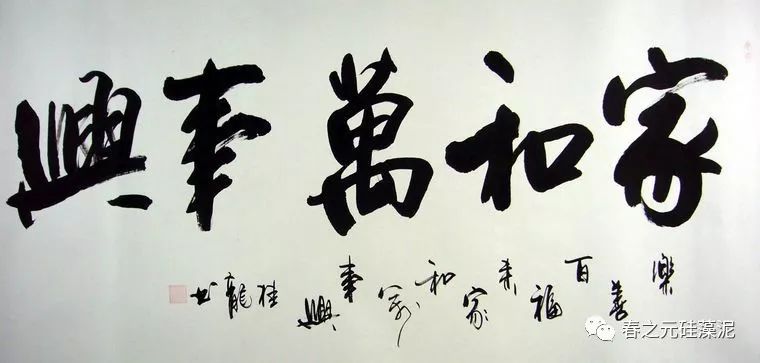 家和萬事興
樂善百福来家和万事興
桂龍书
春之元硅藻泥